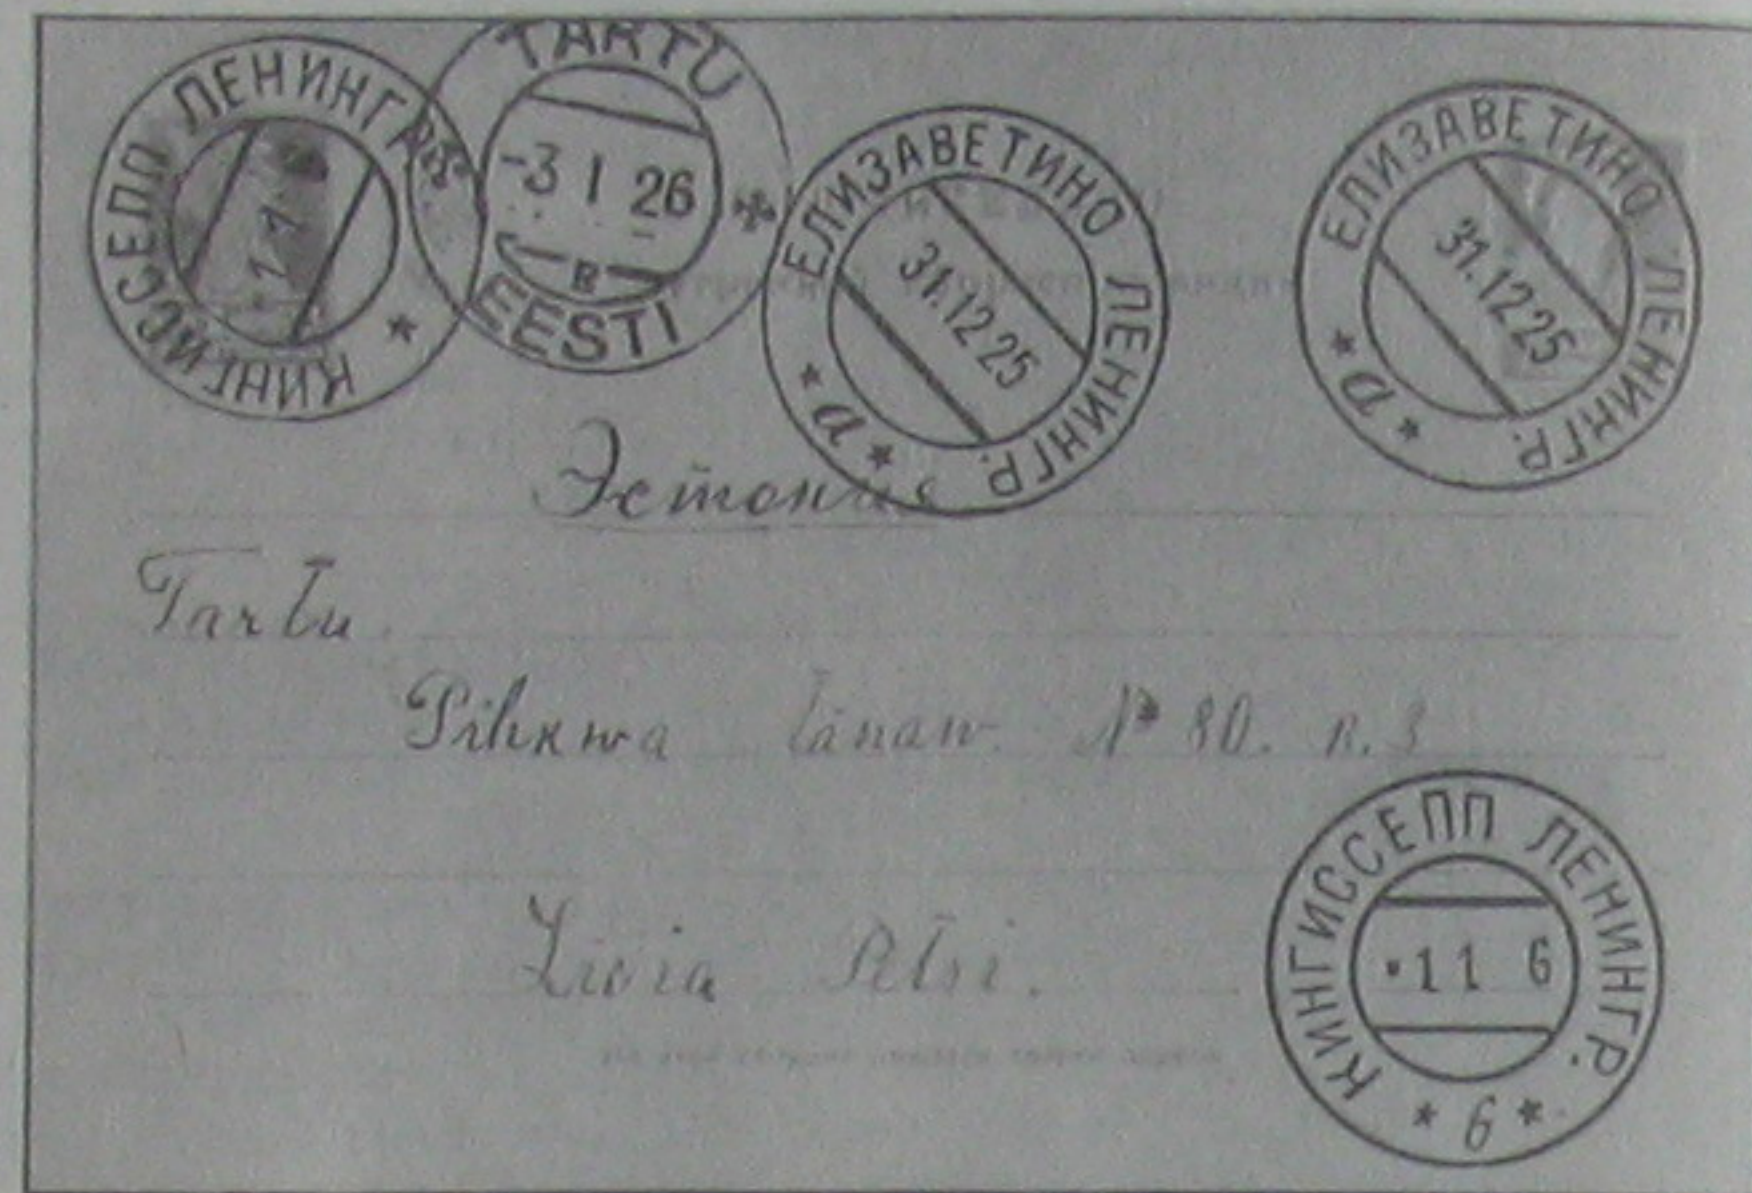 КИНГИССЕПП ЛЕНИНГР.
TARTU
-3 I 26
B
EESTI
ЕЛИЗАВЕТИНО ЛЕНИНГР.
31.12 25
* а *
ЕЛИЗАВЕТИНО ЛЕНИНГР.
31.12 25
* а *
Эстония
Tartu
Pihkwa tänaw № 80. K. 3
Liwia
КИНГИССЕПП ЛЕНИНГР.
·1 1 6
* б *